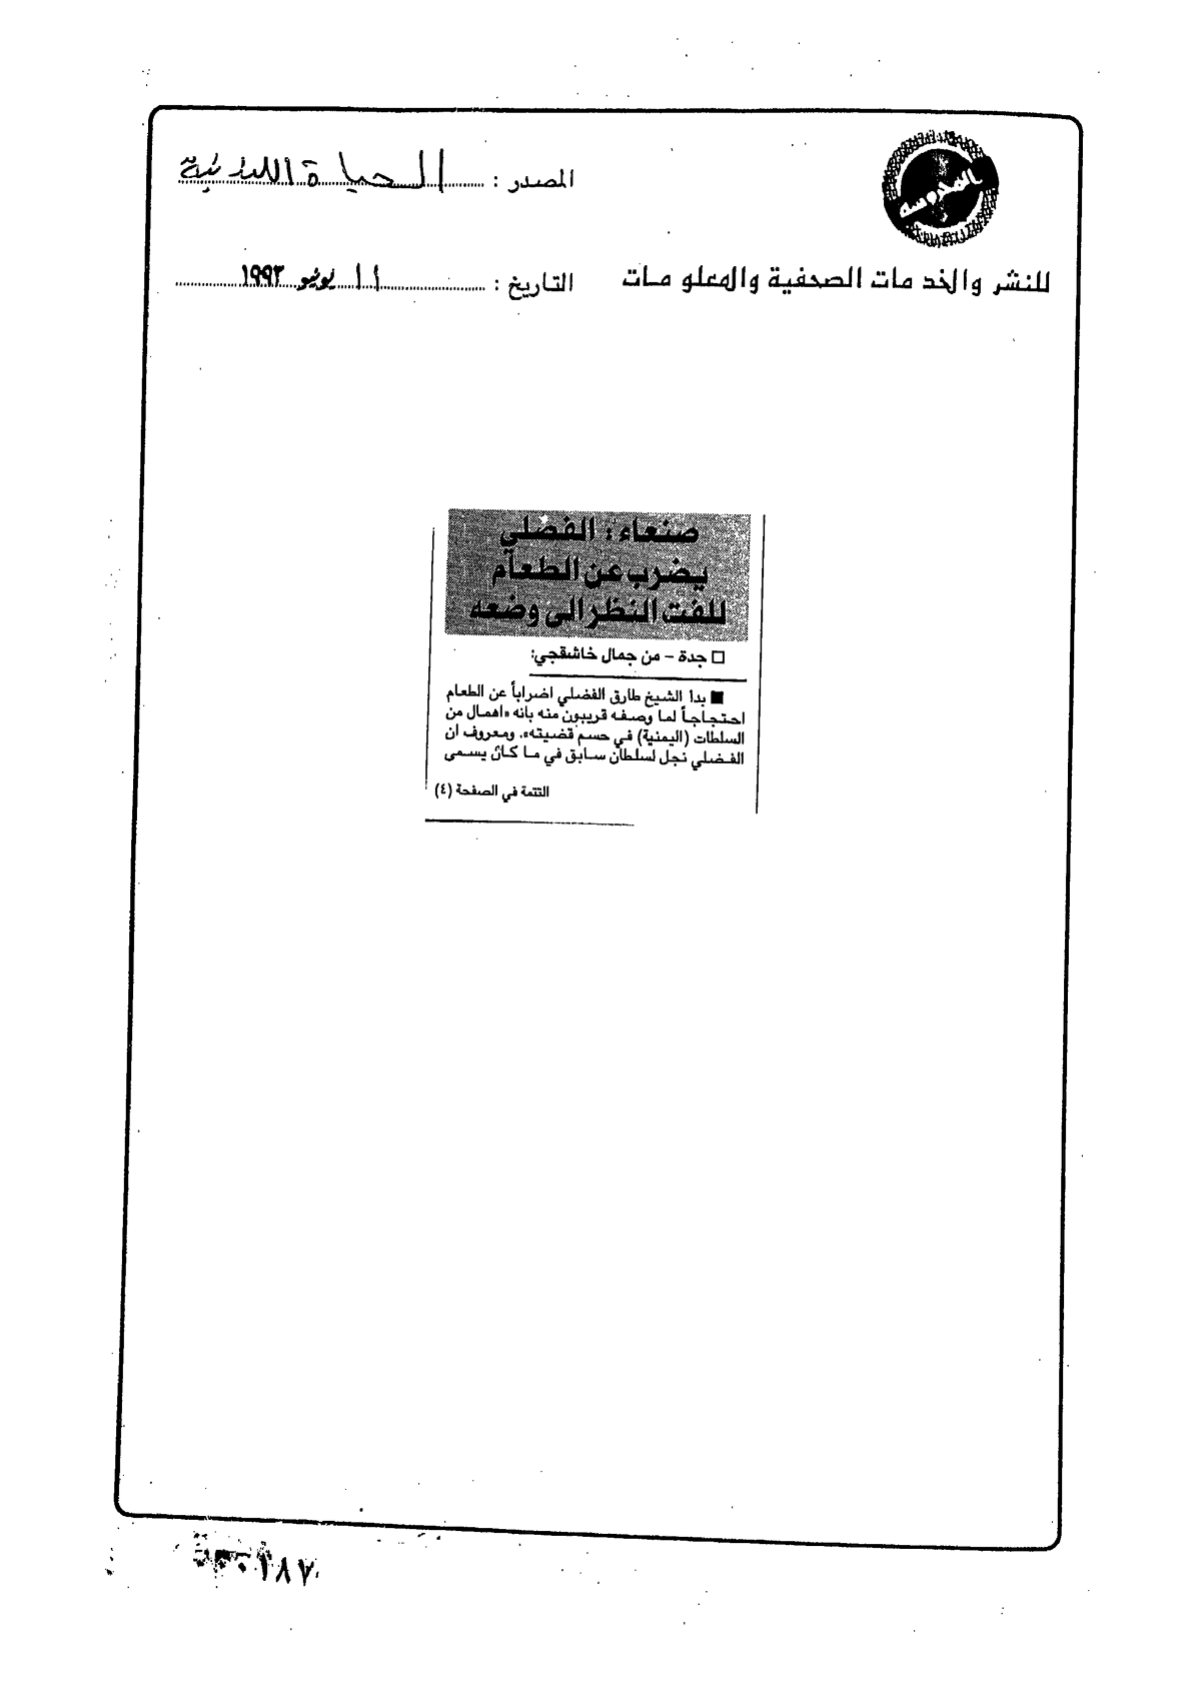 المصدر : الحياة اللندنية
للنشر والخدمات الصحفية والمعلومات
التاريخ : ١١ يونيو ١٩٩٣
صنعاء: الفضلي
يضرب عن الطعام
للفت النظر الى وضعه
□ جدة – من جمال خاشقجي:
■ بدأ الشيخ طارق الفضلي اضراباً عن الطعام
احتجاجاً لما وصفه قريبون منه بانه «اهمال من
السلطات (اليمنية) في حسم قضيته». ومعروف ان
الفضلي نجل لسلطان سابق في ما كان يسمى
التتمة في الصفحة (٤)